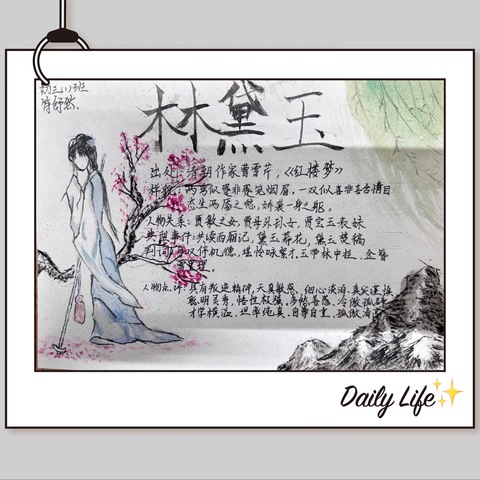 初三(1)班
林黛玉
出处:清朝作家曹雪芹,《红楼梦》
样貌:两弯似蹙非蹙笼烟眉,一双似喜非喜含情目
态生两靥之愁,娇袭一身之病。
人物关系:贾敏之女,贾母外孙女,贾宝玉表妹
典型事件:共读西厢记,黛玉葬花,黛玉焚稿
判词:可叹停机德,堪怜咏絮才,玉带林中挂,金簪
雪里埋。
人物点评:具有叛逆精神,天真敏感,细心淡泊,真实
聪明灵秀,悟性极强,多愁善感,冷傲孤
才学横溢,坦率纯真,自尊自重,孤傲清
Daily Life